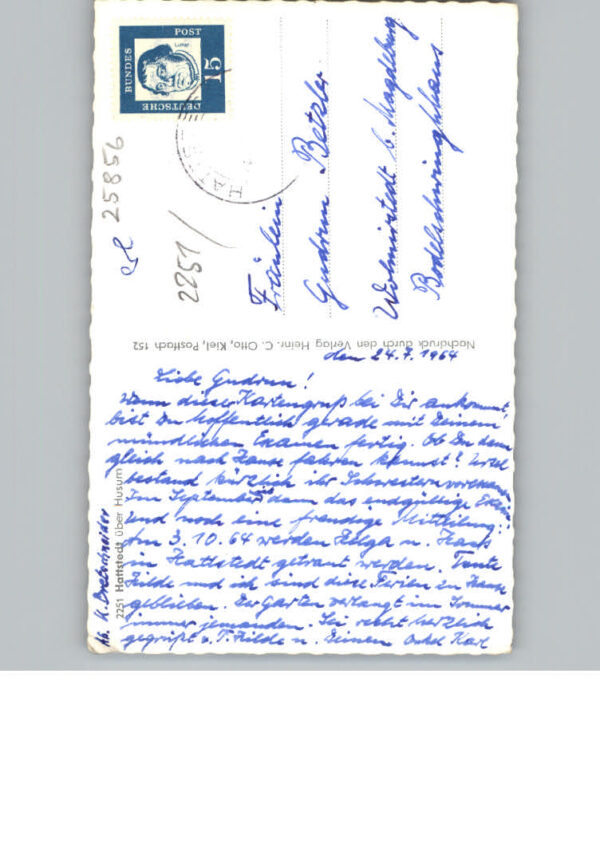 DEUTSCHE
BUNDES
POST
15
25856
2251/
Fräulein
Gudrun Betzler
Wolmirstedt b. Magdeburg
Bodelschwinghhaus
Nachdruck durch den Verlag Heinr. C. Otto, Kiel, Postfach 152
den 24.7.1964
Liebe Gudrun!
Wenn dieser Kartengruß bei Dir ankommt,
bist Du hoffentlich gerade mit Deinem
mündlichen Examen fertig. Ob Du dann
gleich nach Hause fahren kannst?
bestand kürzlich ihr Schwestern
Im September dann das endgültige
Und noch eine freudige Mitteilung:
Am 3.10.64 werden Helga u. Hans
in Hattstedt getraut werden. Tante
Hilde und ich sind diese Ferien zu Hause
geblieben. Der Garten verlangt im Sommer
immer jemanden. Sei recht herzlich
gegrüßt v. T. Hilde u. Deinem Onkel Karl
Ab. K. Bretschneider
2251 Hattstedt über Husum